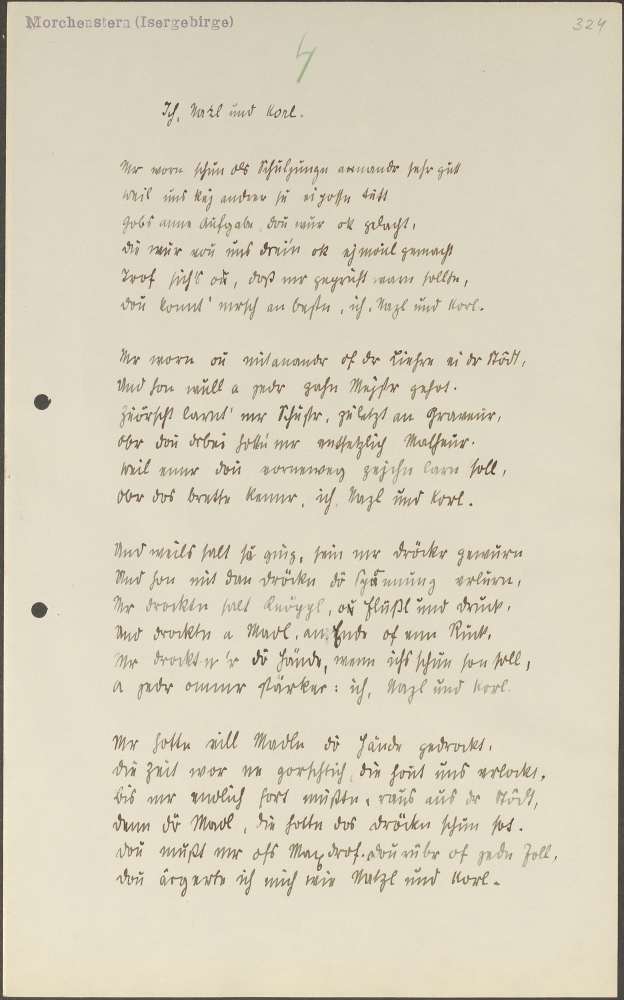 Morchenstern (Isergebirge)
324
4
Ich, Nazl und Korl.
Mr worn schun als Schuljunge ananandr sehr gutt
weil uns kej andrer su ei possn tutt
Gobs anne Aufgabe, dou wur ok gelacht,
die wur vou uns drein ok ejmoul gemacht
Trof sich's ou, doß mr geprüft warn sollte,
dou konnt' mersch an bestn, ich, Nazl und Korl.
Mr worn ou mitanandr of dr Liehre ei dr Stödt,
Und hon wull a jedr zahn Mejstr gehot.
Zuörscht larnt' mr Schustr, zuletzt an Graveur,
obr dou drbei hottn mr entsetzlich Malheur.
weil enner dou vorneweg zejchn larn soll,
obr dos brettn kenner, ich, Nazl und Korl.
Und weils salt su ging, sein mr Dröckr gewurn
Und hon mit dan Dröckn dö Spannung verlurn,
Mr drocktn salt Knöppl, ou Flüßl und Druck,
Und drocktn a Madl, an Ende of enn Ruck,
Mr drocktn'r dö Hände, wenn ichs schun son soll,
a jedr ommr stärker: ich, Nazl und Korl.
Mr hotte vill Madln dö Hände gedrockt,
die Zeit wor ne gorschtich, die hout uns verlockt,
bis mr endlich fort mußtn, raus aus dr Stödt,
denn dö Madl, die hotte dos Dröckn schun sot.
dou mußt mr ofs Maxdrof. dourübr of jedn Zoll,
dou ärgerte ich mich wie Natzl und Korl.